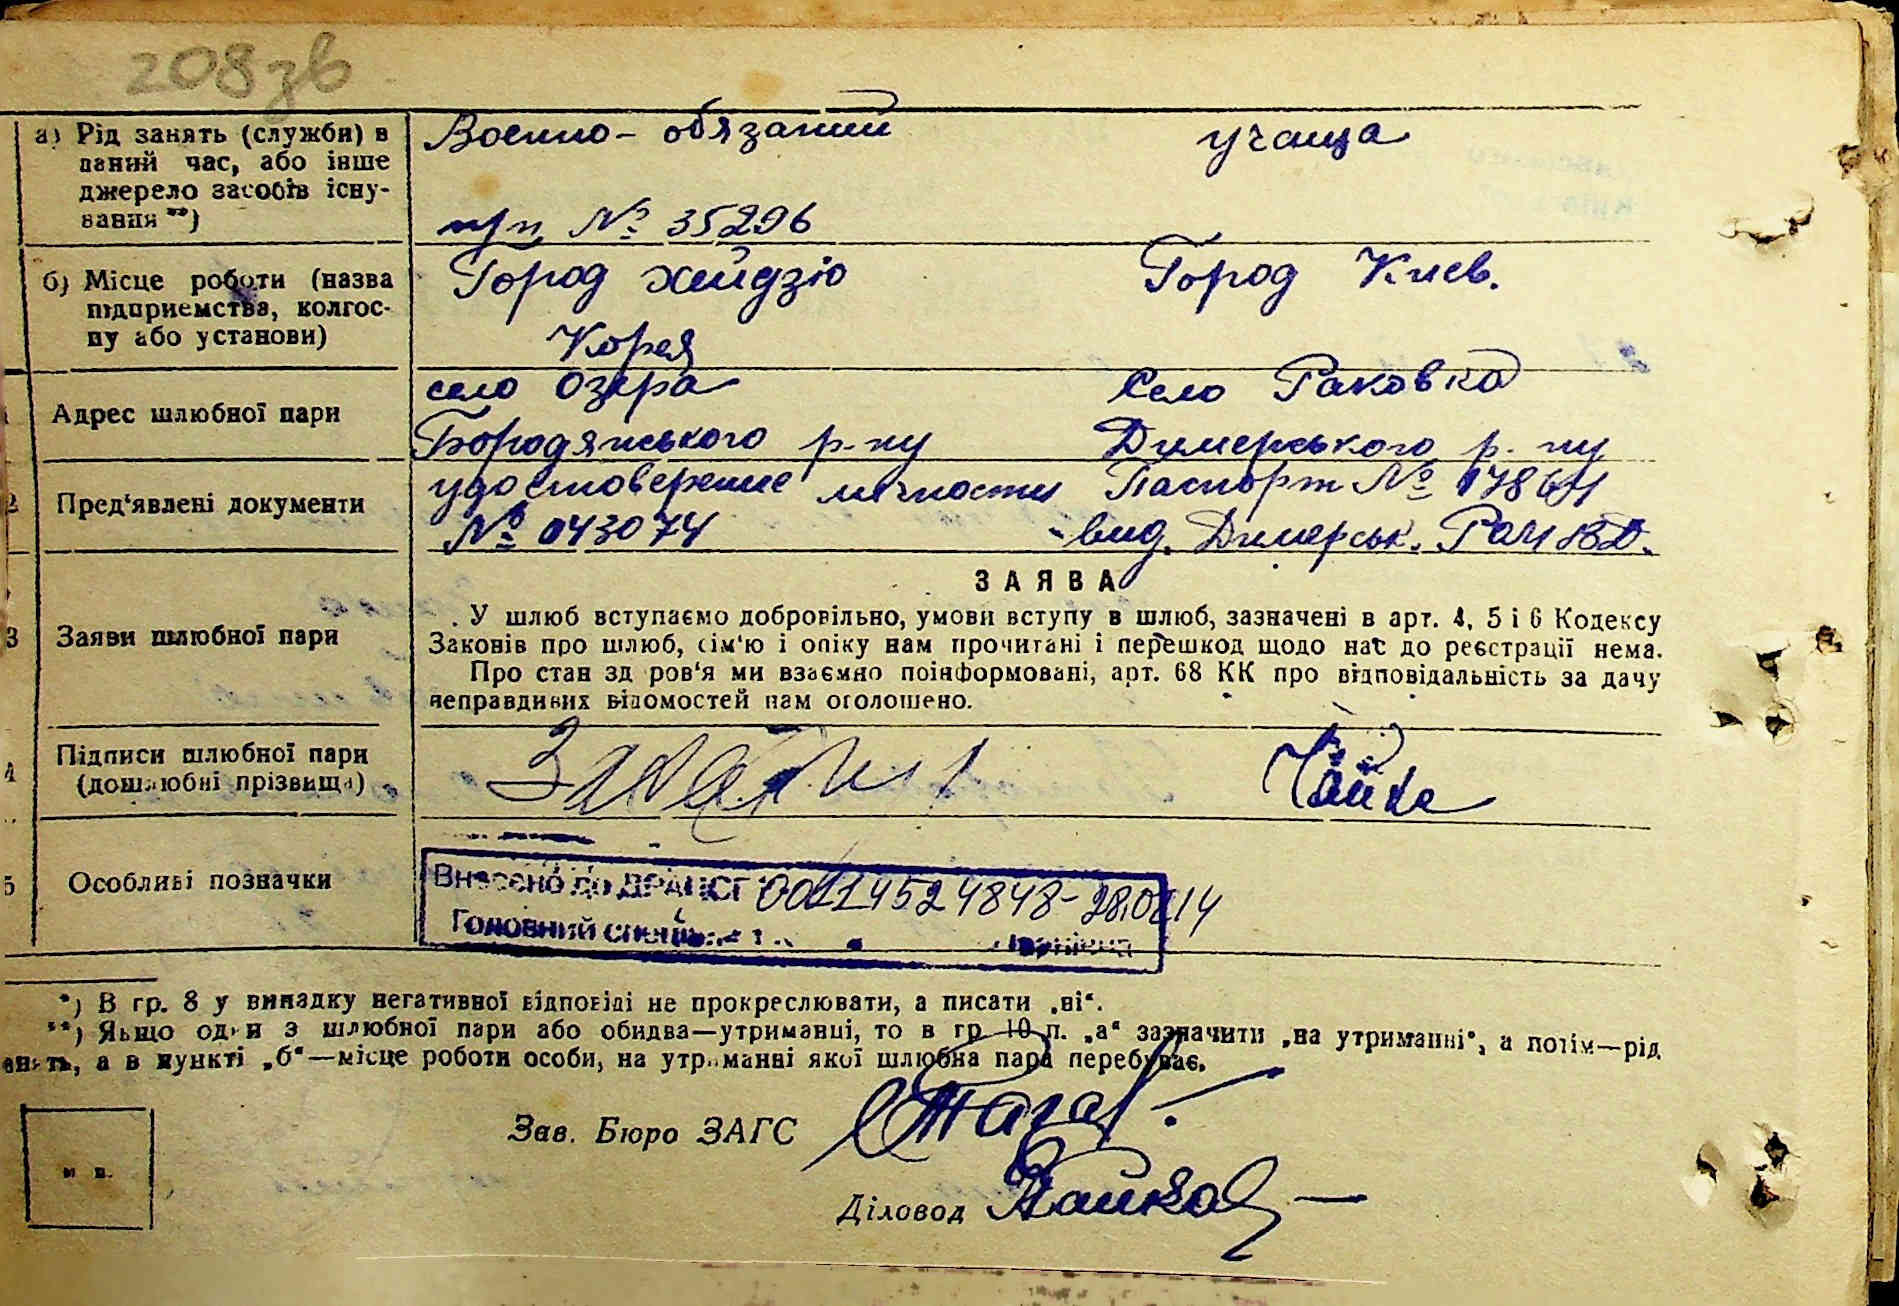 208зв
а) Рід занять (служби) в даний час, або інше джерело засобів існування **)
Военно-обязаний
учаща
п/п № 35296
б) Місце роботи (назва підприємства, колгоспу або установи)
Город Хейдзіо
Корея
Город Киев.
Адрес шлюбної пари
село Озера
Бородянського р-ну
Село Раковка
Димерського р-ну
2 Пред'явлені документи
удостоверение личности
№ 043074
Паспорт №
вид. Димерськ. РОМВД.
3 Заяви шлюбної пари
ЗАЯВА
У шлюб вступаємо добровільно, умови вступу в шлюб, зазначені в арт. 4, 5 і 6 Кодексу
Законів про шлюб, сім'ю і опіку нам прочитані і перешкод щодо нас до реєстрації нема.
Про стан здоров'я ми взаємно поінформовані, арт. 68 КК про відповідальність за дачу
неправдивих відомостей нам оголошено.
4 Підписи шлюбної пари
(дошлюбні прізвища)
Чайка
5 Особливі позначки
Внесено до ДРАЦСГ 00114524848-28.0 14
Головний спеціаліст
*) В гр. 8 у випадку негативної відповіді не прокреслювати, а писати „ні“.
**) Якщо один з шлюбної пари або обидва—утриманці, то в гр 10 п. „а“ зазначити „на утриманні“, а потім—рід
занять, а в пункті „б“—місце роботи особи, на утриманні якої шлюбна пара перебуває.
Зав. Бюро ЗАГС
Діловод
м п.